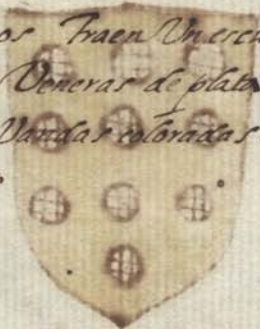 os Traen Un escu
Veneras de plata
Vandas coloradas